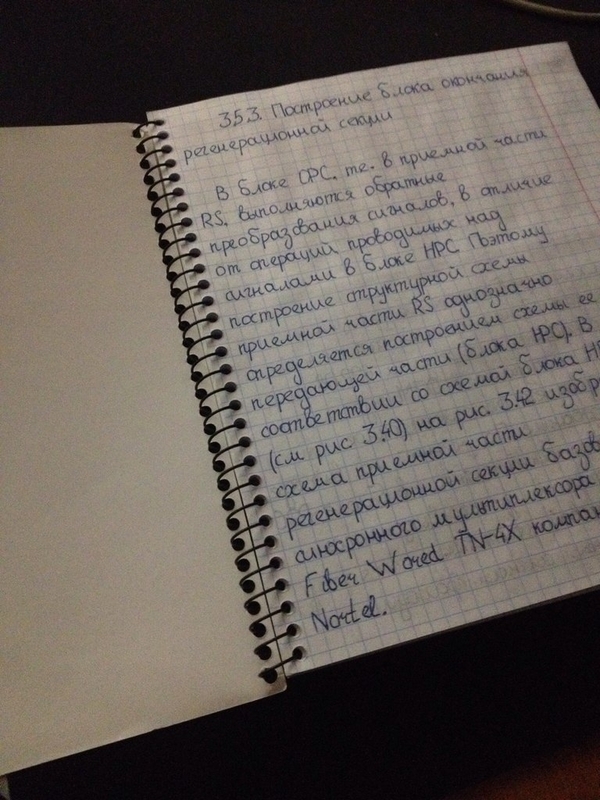 3.5.3. Построение блока окончания
регенерационной секции
В блоке ОРС, т.е. в приемной части
RS, выполняются обратные
преобразования сигналов, в отличие
от операций проводимых над
сигналами в блоке НРС. Поэтому
построение структурной схемы
приемной части RS однозначно
определяется построением схемы ее
передающей части (блока НРС). В
соответствии со схемой блока
(см рис 3.40) на рис. 3.42
схема приемной части
регенерационной секции
синхронного мультиплексора
Fiber Wored TN-4X
Nortel.